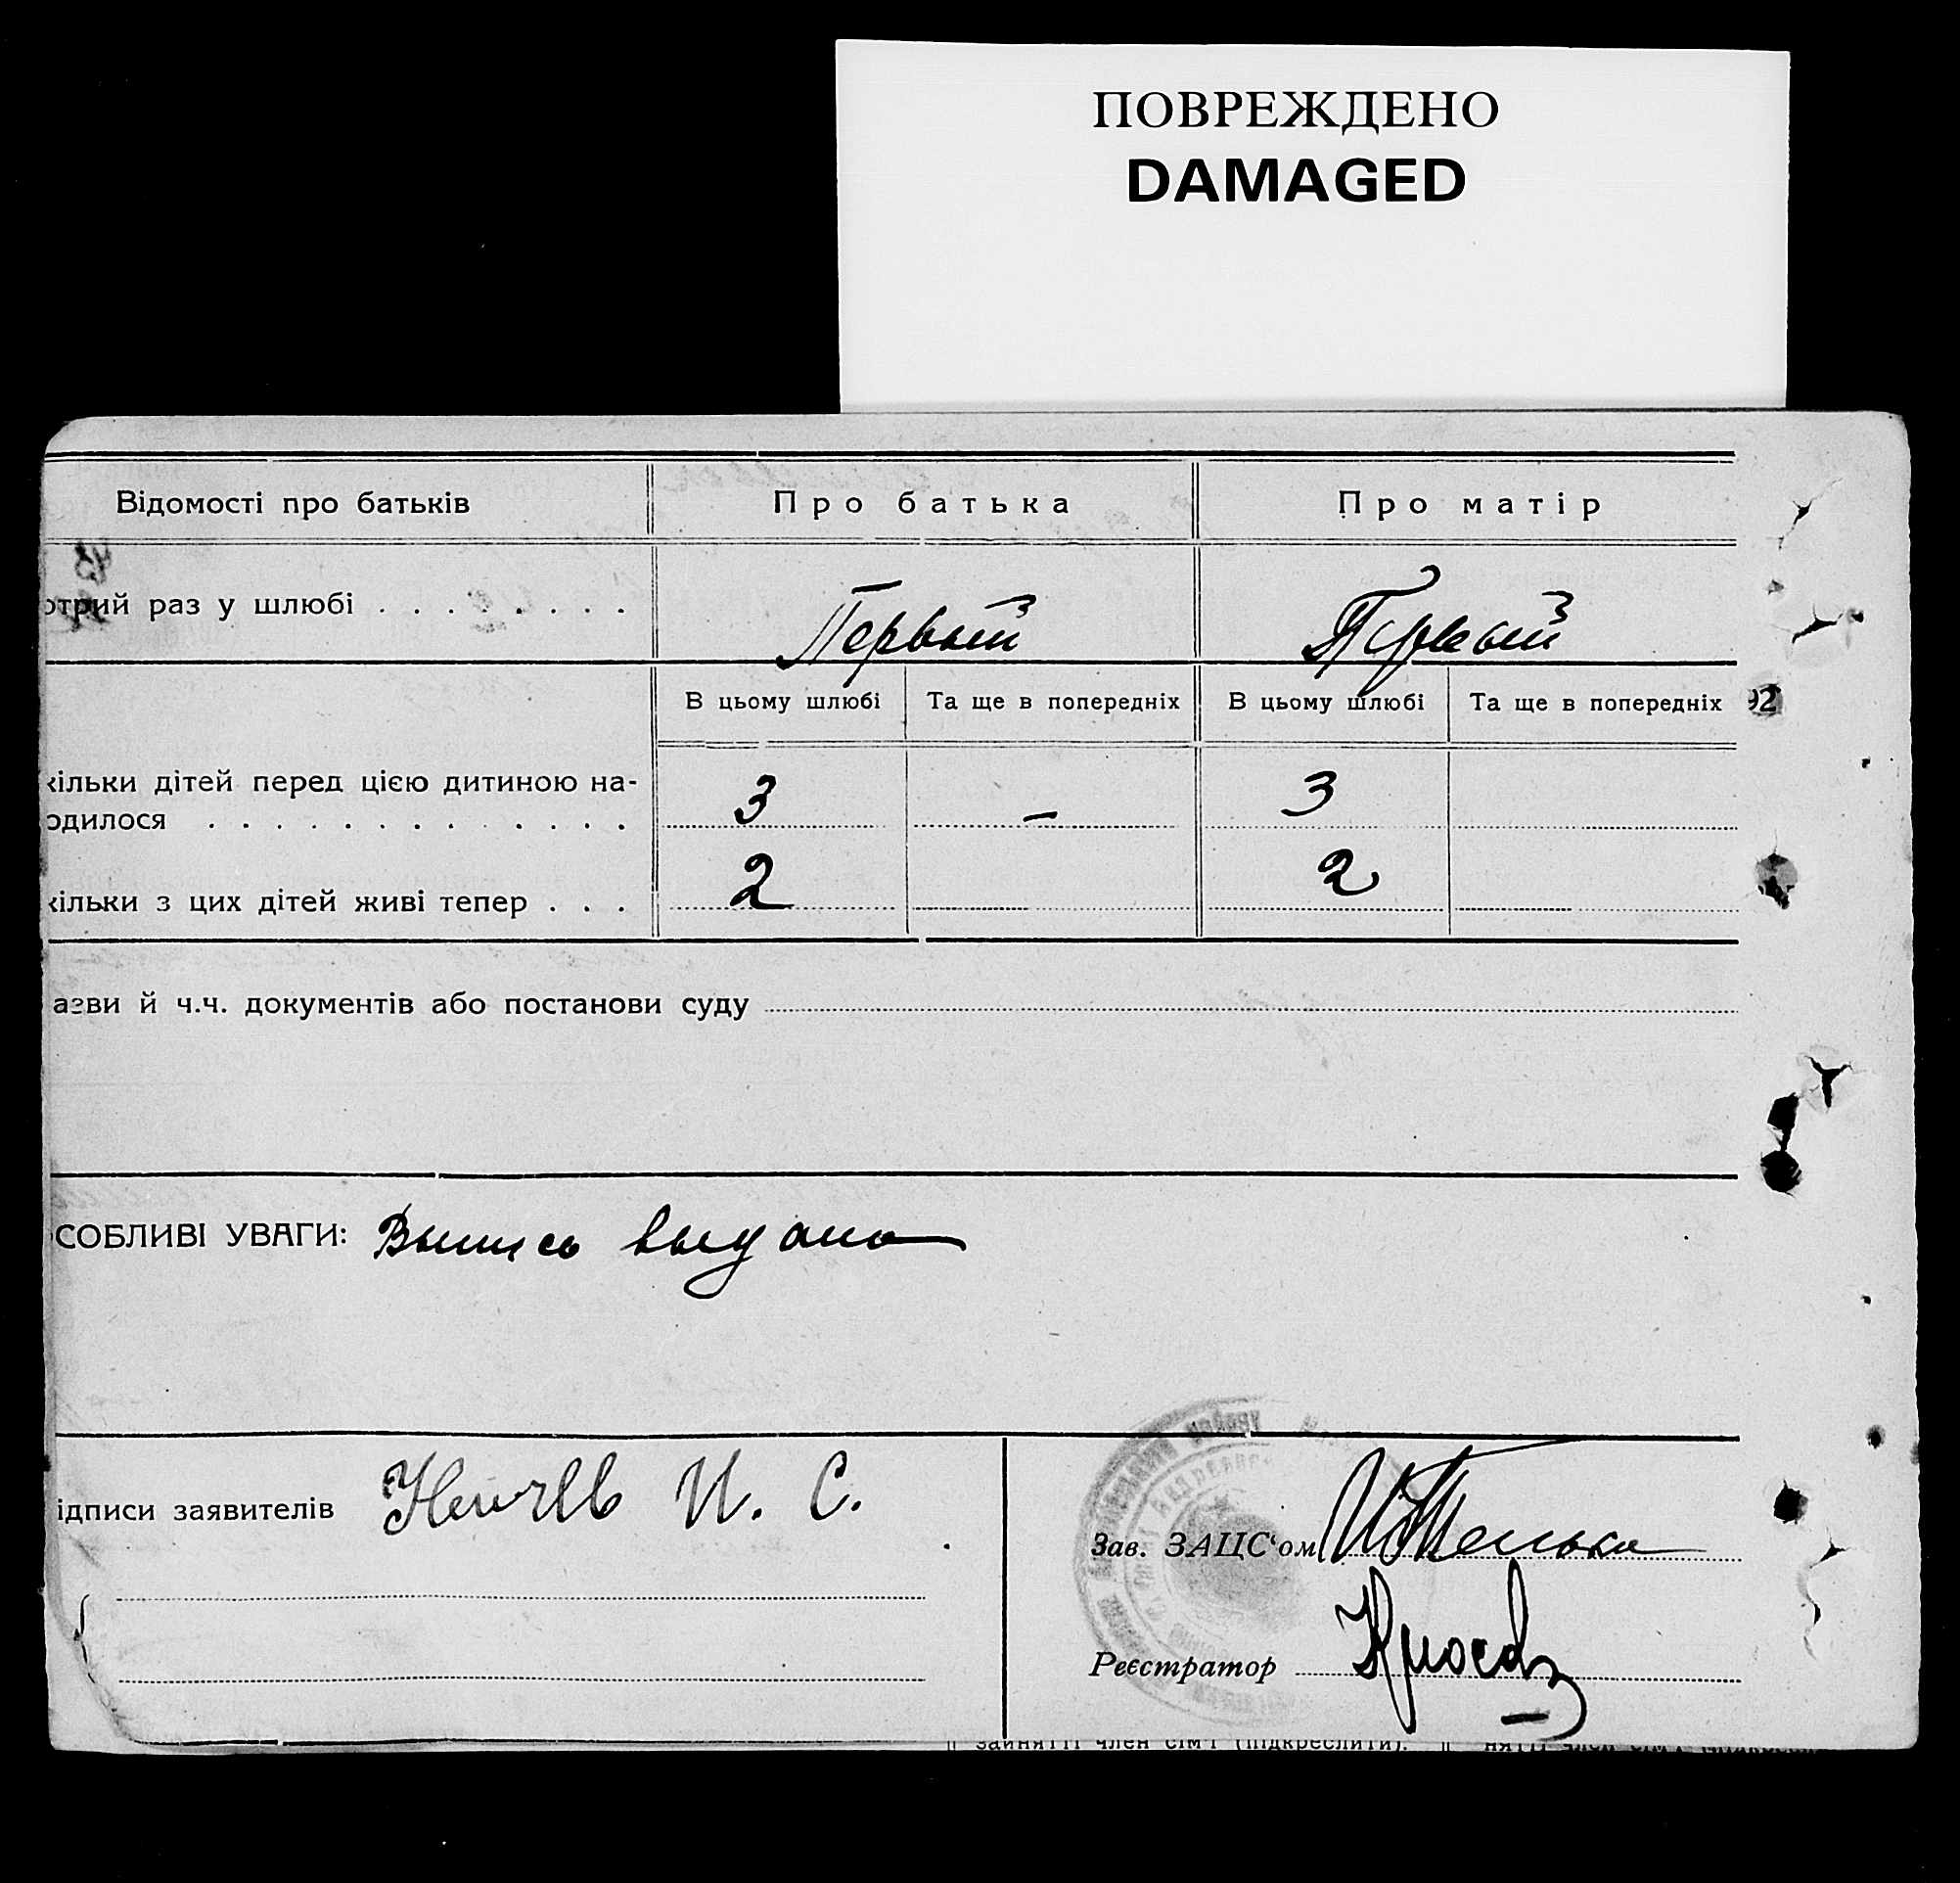 ПОВРЕЖДЕНО
DAMAGED
Відомості про батьків
Про батька
Про матір
отрий раз у шлюбі . . . . . . . .
Первый
Первый
В цьому шлюбі
Та ще в попередніх
В цьому шлюбі
Та ще в попередніх
92
кільки дітей перед цією дитиною на-
одилося . . . . . . . . . . . . . .
3
–
3
кільки з цих дітей живі тепер . . .
2
2
азви й ч.ч. документів або постанови суду
СОБЛИВІ УВАГИ: Выпись выдана
ідписи заявителів
И. С.
Зав. ЗАЦС‘ом
Реєстратор
зайнятті член сім'ї (підкреслити).